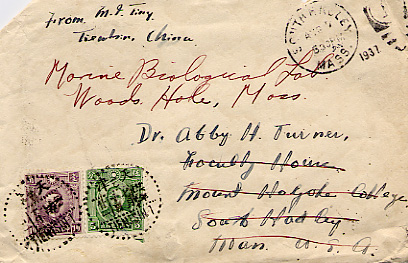 From M. I. Ting
Tientsin, China
SOUTH HADLEY
MASS.
1937
Marine Biological Lab
Woods Hole, Mass.
Dr. Abby H. Turner,
Faculty House
Mount Holyoke College
South Hadley
Mass. U.S.A.
TIENTSIN